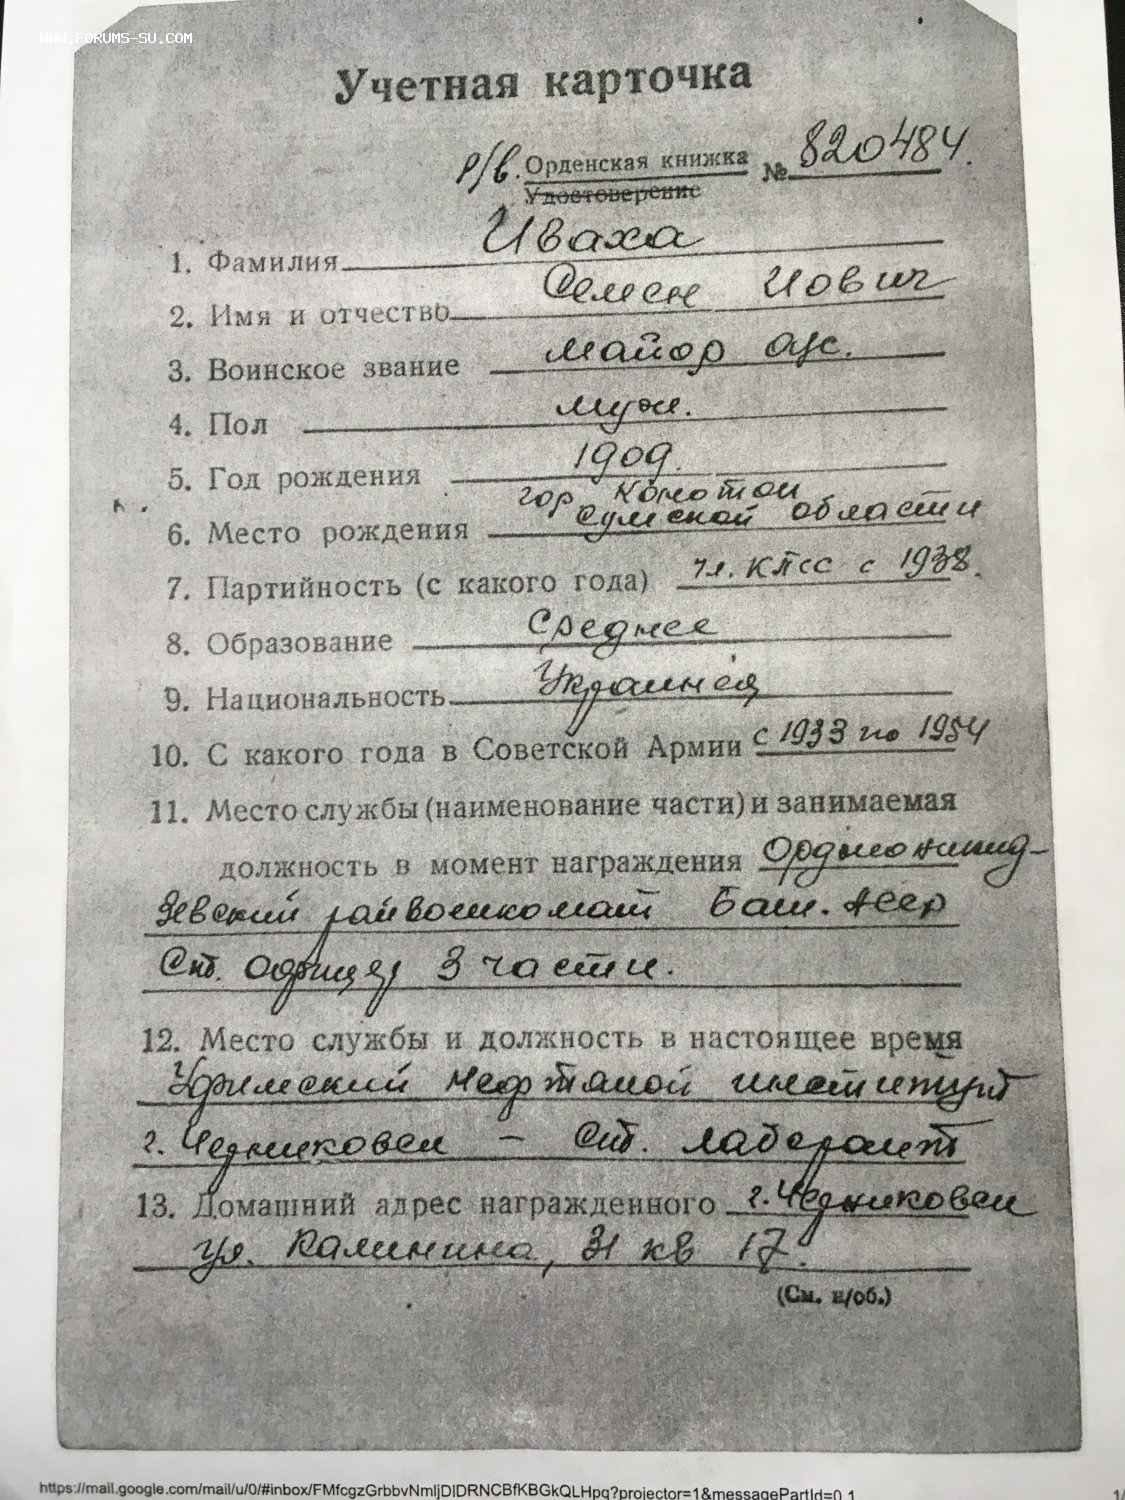 WWW.FORUMS-SU.COM
Учетная карточка
р/в. Орденская книжка № 820484.
Удостоверение
1. Фамилия Иваха
2. Имя и отчество Семен Иович
3. Воинское звание майор а/с.
4. Пол муж.
5. Год рождения 1909.
гор Конотоп
6. Место рождения Сумской области
7. Партийность (с какого года) чл. КПСС с 1938.
8. Образование Среднее
9. Национальность Украинец
10. С какого года в Советской Армии с 1933 по 1954
11. Место службы (наименование части) и занимаемая
должность в момент награждения Орджоникид-
зевский райвоенкомат Баш. АССР
Ст. офицер 3 части.
12. Место службы и должность в настоящее время
Уфимский Нефтяной институт
г. Черниковск – Ст. лаборант
13. Домашний адрес награжденного г. Черниковск
ул. Калинина, 31 кв 17.
(См. н/об.)
https://mail.google.com/mail/u/0/#inbox/FMfcgzGrbbvNmljDlDRNCBfKBGkQLHpq?projector=1&messagePartId=0.1
1/